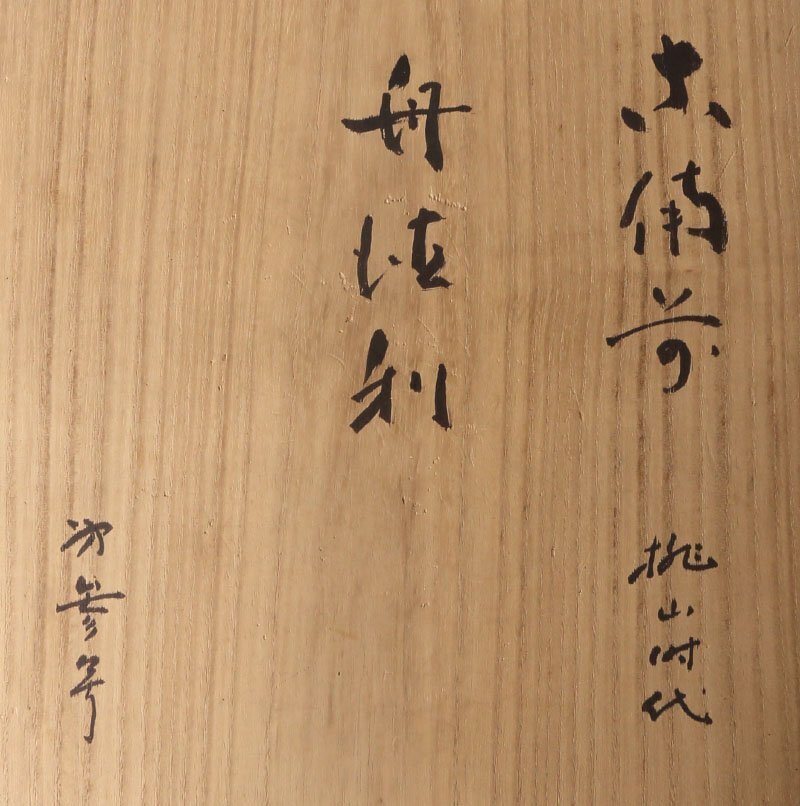 古備前
桃山時代
舟徳利